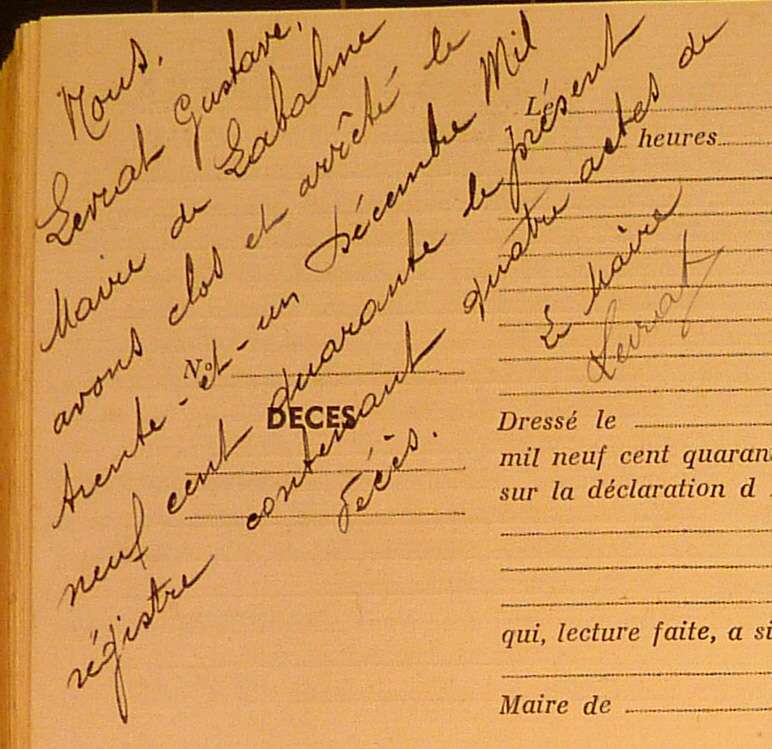 Nous,
Levrat Gustave,
Maire de Labalme
avons clos et arrêté le
trente-et-un Décembre Mil
neuf cent quarante le présent
régistre contenant quatre actes de
Décès.
Le Maire
Levrat
N°
DECES
Le
heures
Dressé le
mil neuf cent quaran
sur la déclaration d
qui, lecture faite, a si
Maire de